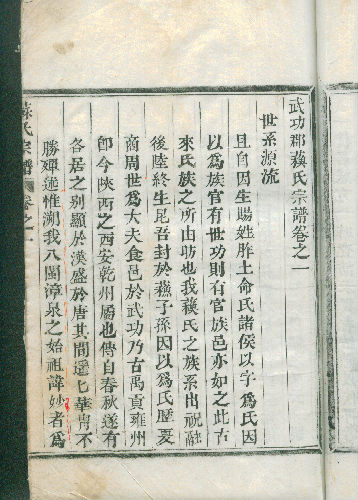 武功郡蘓氏宗譜卷之一
世系源流
且自因生賜姓胙土命氏諸侯以字爲氏因
以爲族官有世功則有官族邑亦如之此古
來氏族之所由昉也我蘓氏之族系出祝融
後陸終生昆吾封於蘓子孫因以爲氏歷夏
商周世爲大夫食邑於武功乃古禹貢雍州
卽今陝西之西安乾州屬也傳自春秋遂有
各居之别顯於漢盛於唐其間遷徙華胄不
勝殫述惟溯我八閩漳泉之始祖諱妙者爲
蘓氏宗譜 卷之一